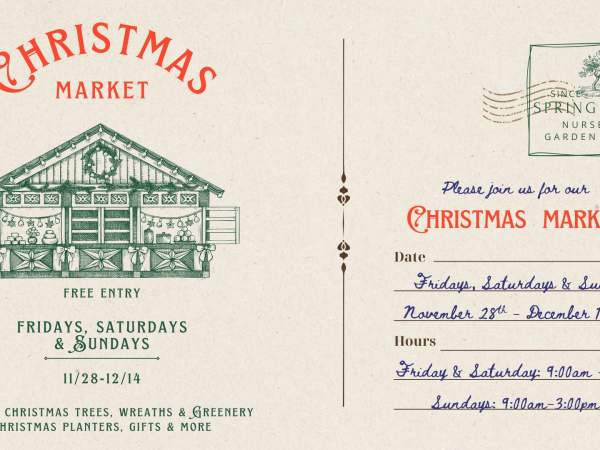 CHRISTMAS
MARKET
FREE ENTRY
FRIDAYS, SATURDAYS
& SUNDAYS
11/28-12/14
CHRISTMAS TREES, WREATHS & GREENERY
CHRISTMAS PLANTERS, GIFTS & MORE
SINCE
SPRING
GARDEN
Please join us for our
CHRISTMAS
Date
Fridays, Saturdays &
November 28th - December
Hours
Friday & Saturday: 9:00am -
Sundays: 9:00am-3:00pm